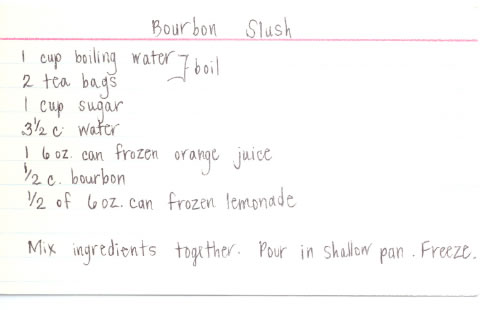 Bourbon Slush
1 cup boiling water } boil
2 tea bags
1 cup sugar
3½ c water
1 6 oz. can frozen orange juice
½ c. bourbon
½ of 6 oz. can frozen lemonade
Mix ingredients together. Pour in shallow pan. Freeze.